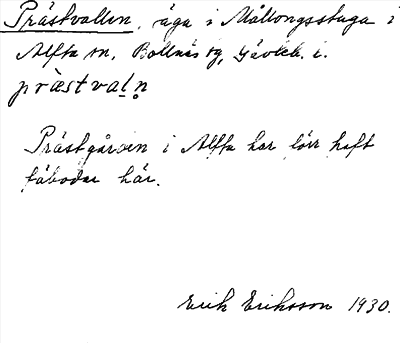 Prästvallen, äga i Mållongsstuga i
Alfta sn, Bollnäs tg, Gävleb. l.
præ̀stvaḷṇ
Prästgården i Alfta har förr haft
fäbodar här.
Erik Eriksson 1930.